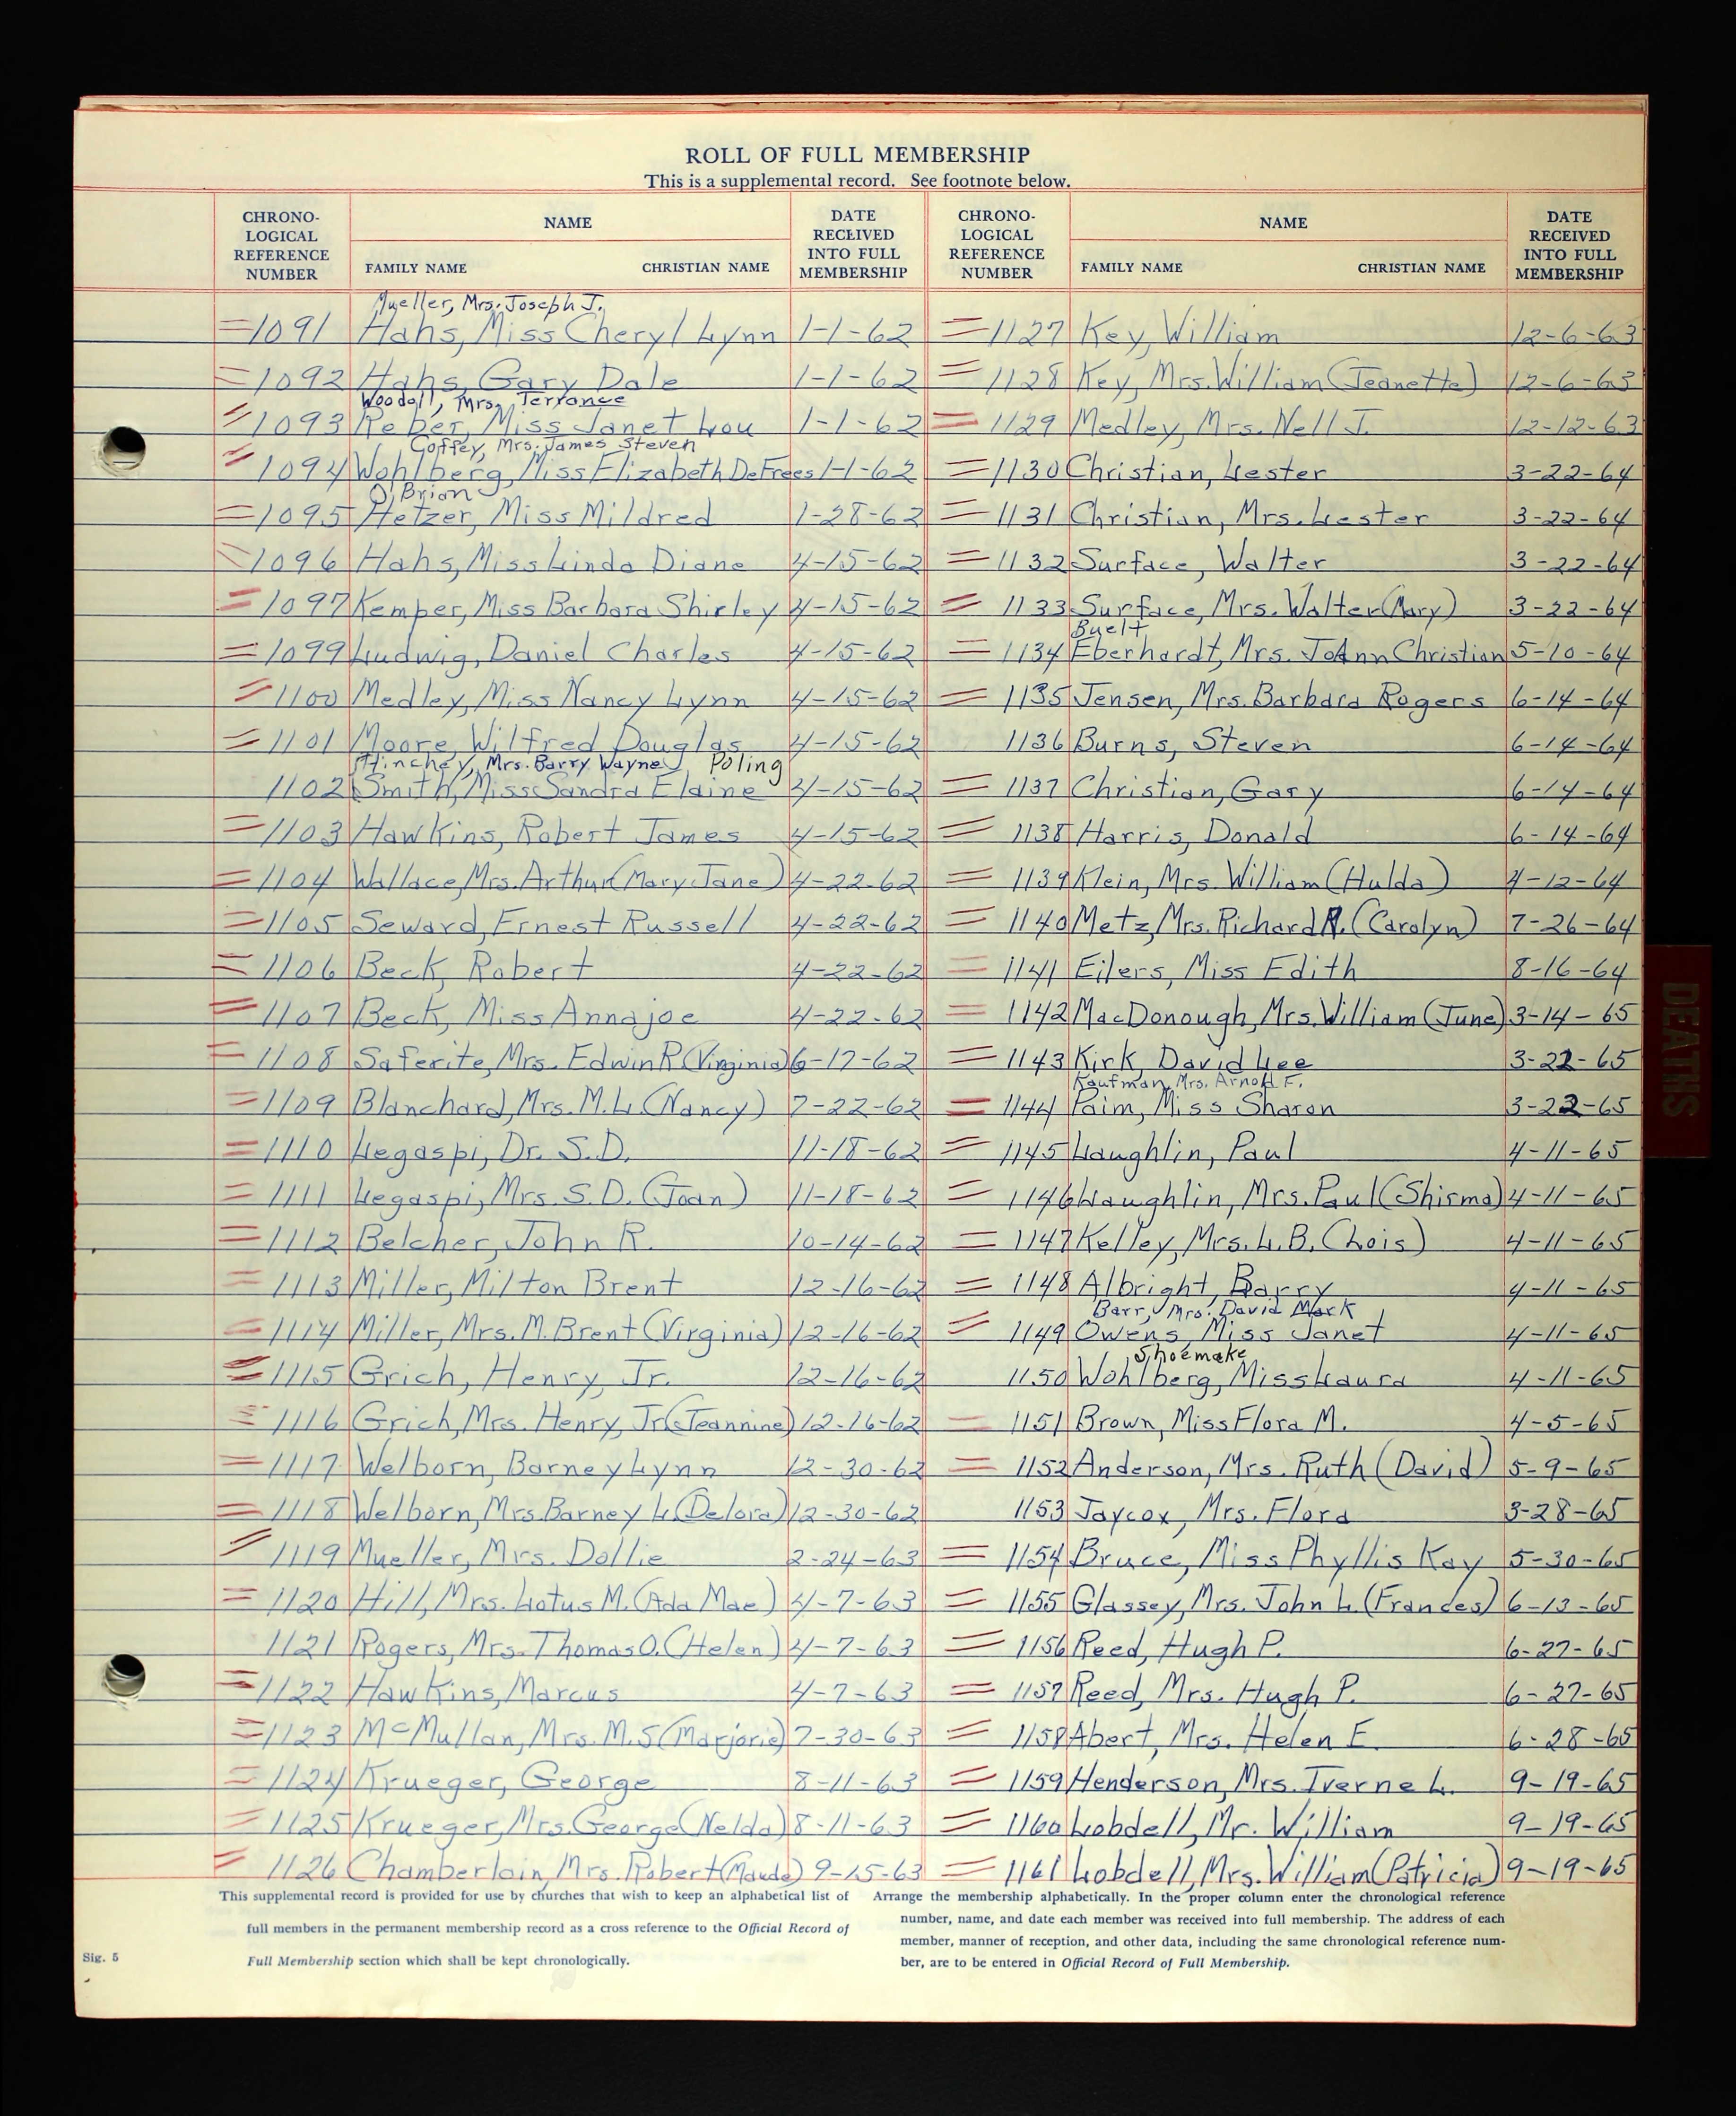 ROLL OF FULL MEMBERSHIP
This is a supplemental record. See footnote below.
CHRONO-
LOGICAL
REFERENCE
NUMBER
NAME
FAMILY NAME CHRISTIAN NAME
DATE
RECEIVED
INTO FULL
MEMBERSHIP
CHRONO-
LOGICAL
REFERENCE
NUMBER
NAME
FAMILY NAME CHRISTIAN NAME
DATE
RECEIVED
INTO FULL
MEMBERSHIP
Mueller, Mrs. Joseph J.
1091 Hahs, Miss Cheryl Lynn 1-1-62
1092 Hahs, Gary Dale 1-1-62
Woodall, Mrs. Terrance
1093 Reber, Miss Janet Lou 1-1-62
Coffey, Mrs. James Steven
1094 Wohlberg, Miss Elizabeth DeFrees 1-1-62
O'Brian
1095 Hetzer, Miss Mildred 1-28-62
1096 Hahs, Miss Linda Diane 4-15-62
1097 Kemper, Miss Barbara Shirley 4-15-62
1099 Ludwig, Daniel Charles 4-15-62
1100 Medley, Miss Nancy Lynn 4-15-62
1101 Moore, Wilfred Douglas 4-15-62
Hinchey, Mrs. Barry Wayne Poling
1102 Smith, Miss Sandra Elaine 4-15-62
1103 Hawkins, Robert James 4-15-62
1104 Wallace, Mrs. Arthur (Mary Jane) 4-22-62
1105 Seward, Ernest Russell 4-22-62
1106 Beck, Robert 4-22-62
1107 Beck, Miss Annajoe 4-22-62
1108 Saferite, Mrs. Edwin R (Virginia) 6-17-62
1109 Blanchard, Mrs. M.L. (Nancy) 7-22-62
1110 Legaspi, Dr. S.D. 11-18-62
1111 Legaspi, Mrs. S.D. (Joan) 11-18-62
1112 Belcher, John R. 10-14-62
1113 Miller, Milton Brent 12-16-62
1114 Miller, Mrs. M. Brent (Virginia) 12-16-62
1115 Grich, Henry, Jr. 12-16-62
1116 Grich, Mrs. Henry, Jr. (Jeannine) 12-16-62
1117 Welborn, Barney Lynn 12-30-62
1118 Welborn, Mrs. Barney L. (Delora) 12-30-62
1119 Mueller, Mrs. Dollie 2-24-63
1120 Hill, Mrs. Lotus M. (Ada Mae) 4-7-63
1121 Rogers, Mrs. Thomas O. (Helen) 4-7-63
1122 Hawkins, Marcus 4-7-63
1123 McMullan, Mrs. M.S (Marjorie) 7-30-63
1124 Krueger, George 8-11-63
1125 Krueger, Mrs. George (Nelda) 8-11-63
1126 Chamberlain, Mrs. Robert (Maude) 9-15-63
1127 Key, William 12-6-63
1128 Key, Mrs. William (Jeanette) 12-6-63
1129 Medley, Mrs. Nell J. 12-12-63
1130 Christian, Lester 3-22-64
1131 Christian, Mrs. Lester 3-22-64
1132 Surface, Walter 3-22-64
1133 Surface, Mrs. Walter (Mary) 3-22-64
Buelt
1134 Eberhardt, Mrs. JoAnn Christian 5-10-64
1135 Jensen, Mrs. Barbara Rogers 6-14-64
1136 Burns, Steven 6-14-64
1137 Christian, Gary 6-14-64
1138 Harris, Donald 6-14-64
1139 Klein, Mrs. William (Hulda) 4-12-64
1140 Metz, Mrs. Richard R. (Carolyn) 7-26-64
1141 Eilers, Miss Edith 8-16-64
1142 MacDonough, Mrs. William (June) 3-14-65
1143 Kirk, David Lee 3-22-65
Kaufman, Mrs. Arnold F.
1144 Paim, Miss Sharon 3-22-65
1145 Laughlin, Paul 4-11-65
1146 Laughlin, Mrs. Paul (Shirma) 4-11-65
1147 Kelley, Mrs. L.B. (Lois) 4-11-65
1148 Albright, Barry 4-11-65
Barr, Mrs. David Mark
1149 Owens, Miss Janet 4-11-65
Shoemake
1150 Wohlberg, Miss Laura 4-11-65
1151 Brown, Miss Flora M. 4-5-65
1152 Anderson, Mrs. Ruth (David) 5-9-65
1153 Jaycox, Mrs. Flora 3-28-65
1154 Bruce, Miss Phyllis Kay 5-30-65
1155 Glassey, Mrs. John L. (Frances) 6-13-65
1156 Reed, Hugh P. 6-27-65
1157 Reed, Mrs. Hugh P. 6-27-65
1158 Abert, Mrs. Helen E. 6-28-65
1159 Henderson, Mrs. Iverne L. 9-19-65
1160 Lobdell, Mr. William 9-19-65
1161 Lobdell, Mrs. William (Patricia) 9-19-65
This supplemental record is provided for use by churches that wish to keep an alphabetical list of
full members in the permanent membership record as a cross reference to the Official Record of
Full Membership section which shall be kept chronologically.
Arrange the membership alphabetically. In the proper column enter the chronological reference
number, name, and date each member was received into full membership. The address of each
member, manner of reception, and other data, including the same chronological reference num-
ber, are to be entered in Official Record of Full Membership.
Sig. 5
DEATHS